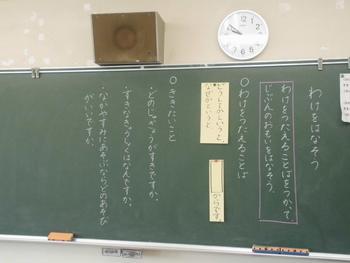 わけをはなそう
わけをつたえることばをつかって、
じぶんのおもいをはなそう。
○わけをつたえることば
どうしてかというと、
なぜかというと、
からです
○ききたいこと
・どのじゅぎょうがすきですか。
・すきなきゅうしょくはなんですか。
・ながやすみにあそぶならどのあそび
がいいですか。